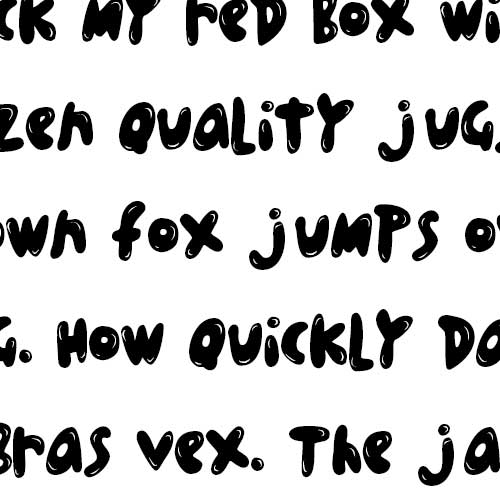 ck my red box wi
zen quality jug
own fox jumps o
g. How quickly da
bras vex. The ja